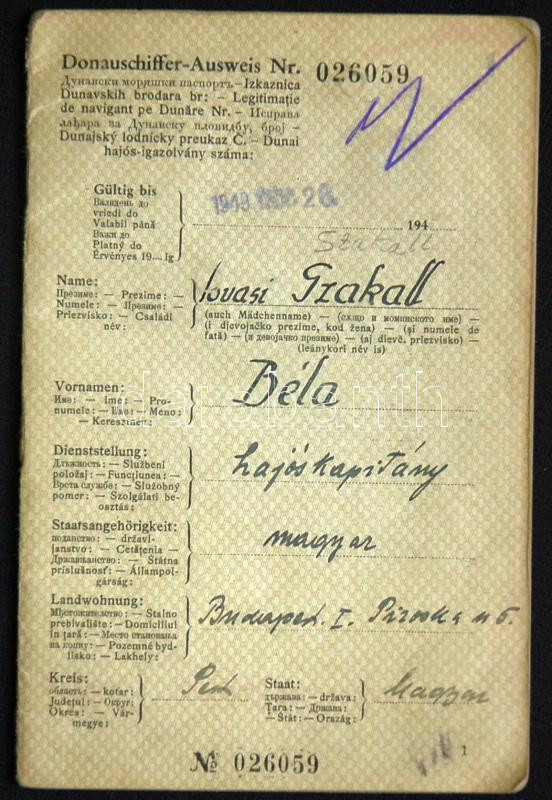 Donauschiffer-Ausweis Nr. 026059
Дунавски моряшки паспортъ — Izkaznica
Dunavskih brodara br: — Legitimație
de navigant pe Dunăre Nr. — Исправа
лађара за Дунавску пловидбу, број —
Dunajský lodnícky preukaz Č. — Dunai
hajós-igazolvány száma:
Gültig bis
Валиденъ до
vriedi do
Valabil până
Важи до
Platný do
Érvényes 19.... ig
1949 26.
194
Szakall
Name:
Презиме: — Prezime: —
Numele: — Презиме: —
Priezvisko: — Családi
név:
lovasi Szakall
(auch Mädchenname) — (също и моминското име) —
(i djevojačko prezime, kod žena) — (și numele de
fată) — (и девојачко презиме) — (aj dievč. priezvisko) —
(leánykori név is)
Vornamen:
Име: — ime: — Pro-
numele: — Име: — Meno:
— Keresztnév:
Béla
darabanth
Dienststellung:
Длъжность: — Službeni
položaj: — Funcțiunea: —
Врста службе: — Služobný
pomer: — Szolgálati be-
osztás:
hajóskapitány
Staatsangehörigkeit:
поданство: — državl-
janstvo: — Cetățenia —
Држављанство: — Štátna
príslušnosť: — Állampol-
gárság:
magyar
Landwohnung:
Мѣстожителство: — Stalno
prebivalište: — Domiciliul
în țară: — Место становања
на копну: — Pozemné byd-
lisko: — Lakhely:
Budapest. I. Piroska u 6.
Kreis:
область: — kotar:
Județul: — Округ:
Okres: — Vár-
megye:
Pest
Staat:
държава: — država:
Țara: — Држава:
— Štát: — Ország:
Magyar
№ 026059
1